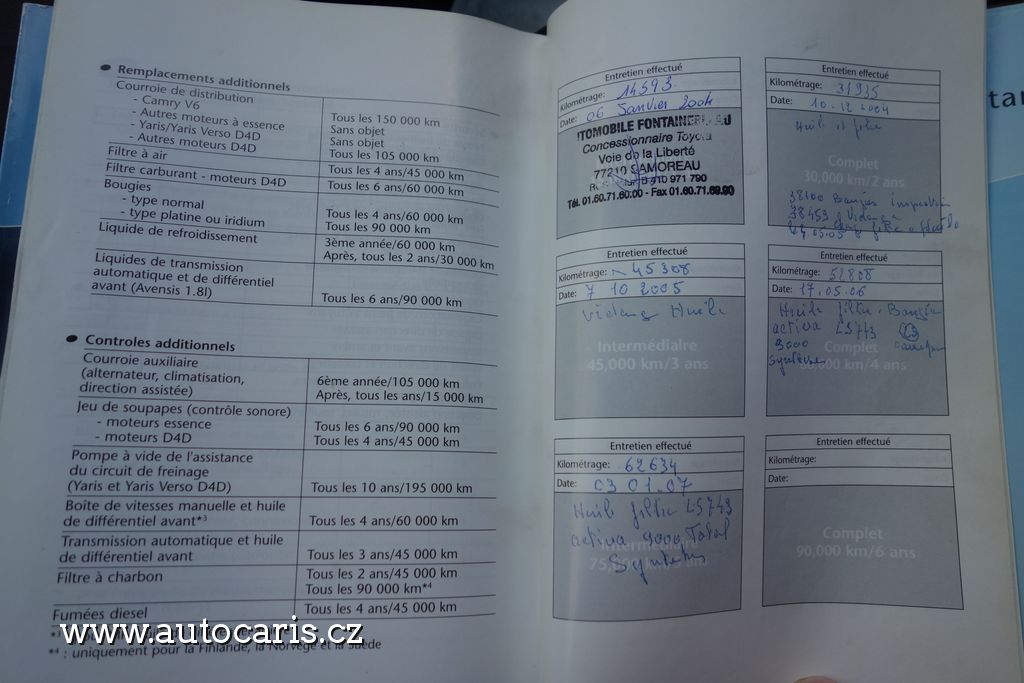 Remplacements additionnels
Courroie de distribution
- Camry V6 Tous les 150 000 km
- Autres moteurs à essence Sans objet
- Yaris/Yaris Verso D4D Sans objet
- Autres moteurs D4D Tous les 105 000 km
Filtre à air Tous les 4 ans/45 000 km
Filtre carburant - moteurs D4D Tous les 6 ans/60 000 km
Bougies
- type normal Tous les 4 ans/60 000 km
- type platine ou iridium Tous les 90 000 km
Liquide de refroidissement 3ème année/60 000 km
Après, tous les 2 ans/30 000 km
Liquides de transmission
automatique et de différentiel
avant (Avensis 1.8l) Tous les 6 ans/90 000 km
Controles additionnels
Courroie auxiliaire
(alternateur, climatisation, 6ème année/105 000 km
direction assistée) Après, tous les ans/15 000 km
Jeu de soupapes (contrôle sonore)
- moteurs essence Tous les 6 ans/90 000 km
- moteurs D4D Tous les 4 ans/45 000 km
Pompe à vide de l'assistance
du circuit de freinage
(Yaris et Yaris Verso D4D) Tous les 10 ans/195 000 km
Boîte de vitesses manuelle et huile
de différentiel avant*3 Tous les 4 ans/60 000 km
Transmission automatique et huile
de différentiel avant Tous les 3 ans/45 000 km
Filtre à charbon Tous les 2 ans/45 000 km
Tous les 90 000 km*4
Fumées diesel Tous les 4 ans/45 000 km
*4 : uniquement pour la Finlande, la Norvège et la Suède
www.autocaris.cz
Entretien effectué
Kilométrage: 14593
Date: 06 Janvier 2004
Concessionnaire Toyota
Voie de la Liberté
77210 SAMOREAU
Tél. 01.60.71.60.00 - Fax 01.60.71.69.90
Entretien effectué
Kilométrage:
Date: 10.12.2004
Complet
30,000 km/2 ans
Entretien effectué
Kilométrage: 45308
Date: 7 10 2005
Vidange Huile
Intermédiaire
45,000 km/3 ans
Entretien effectué
Kilométrage: 52808
Date: 17.05.06
Huile filtre
activa
9000
Complet
60,000 km/4 ans
Entretien effectué
Kilométrage: 62634
Date: 03 01.07
Huile filtre LS743
activa 9000 Total
Intermédiaire
75,000 km/5 ans
Entretien effectué
Kilométrage:
Date:
Complet
90,000 km/6 ans
tar